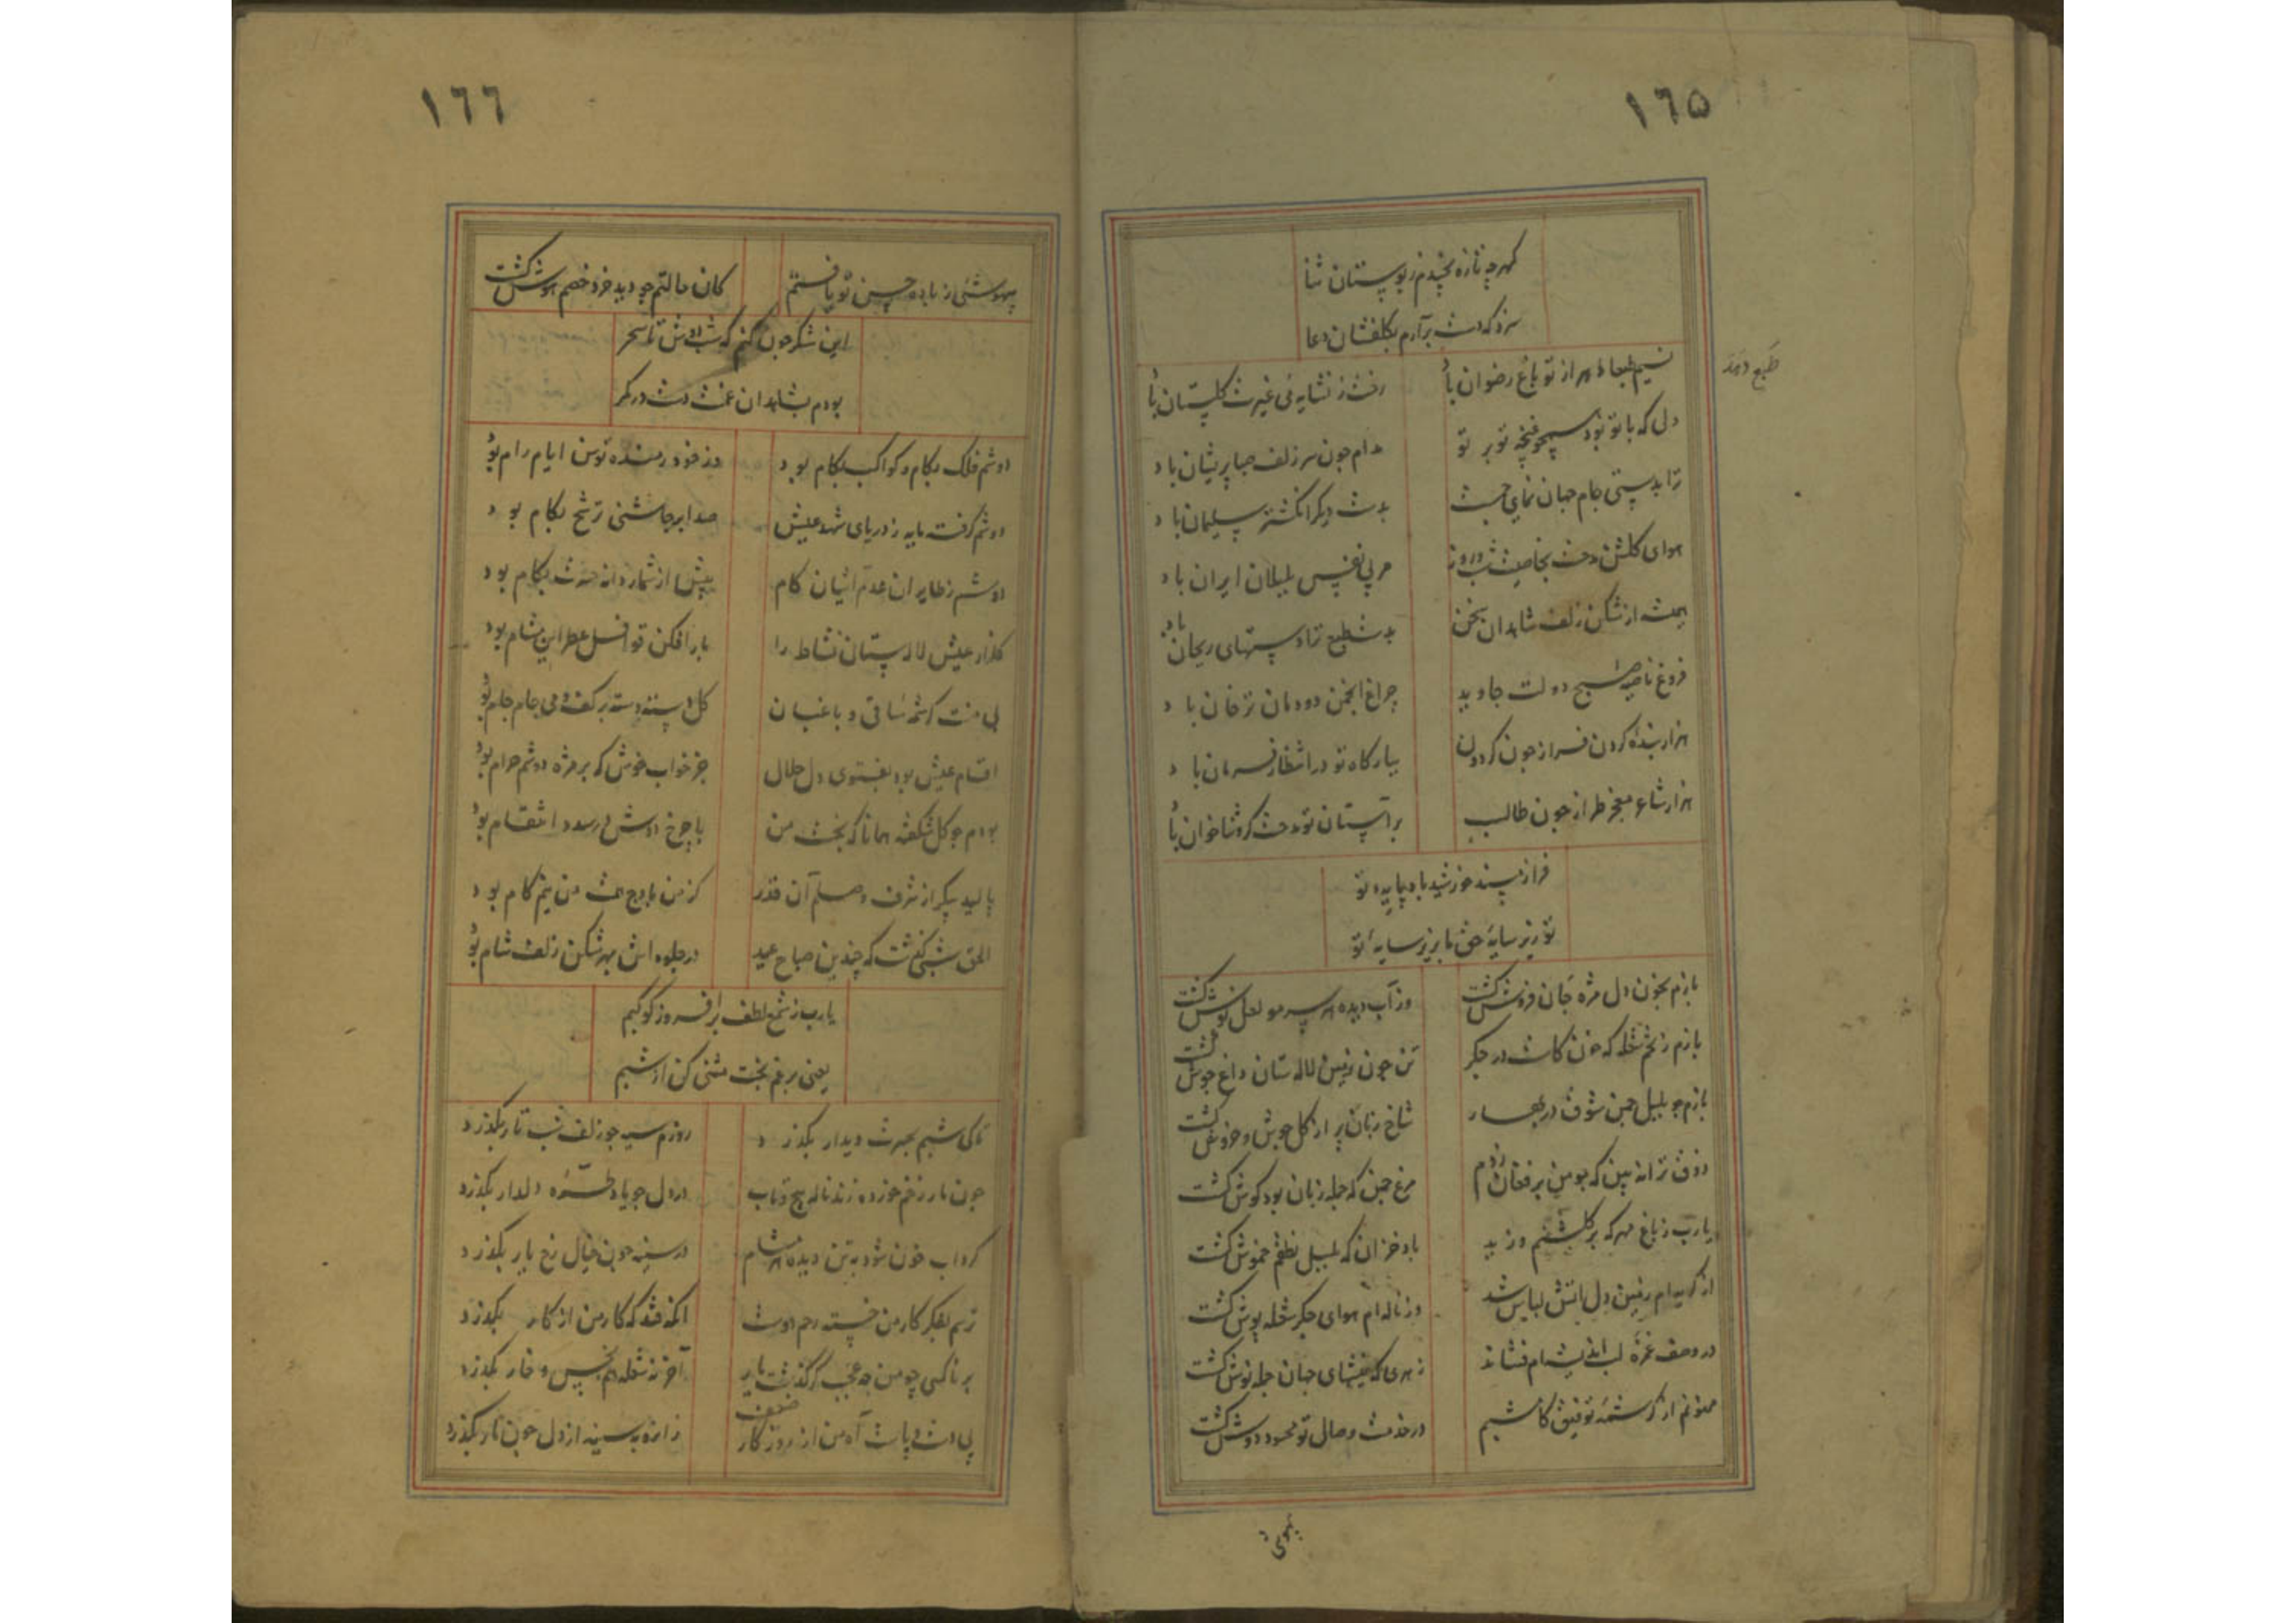 ١٦۵
کهرچه تازه بچیدم ز بوستان ثنا
سزد که دست برآرم بکلفشان دعا
نسیم از تو باغ رضوان باد
رخت ز غیرت کلستان باد
دلی که با تو بود همچو غنچه تو بر تو
مدام جون سر زلف صبا پریشان باد
ترا بدستی جام جهان نمای جست
بدست دیکر انکشتر سلیمان باد
هوای کلشن مدحت بخاصیت شب و روز
مربی نفس بلبلان ایران باد
همیشه از شکن زلف شاهدان سخن
بدست طبع تو دستهای ریحان باد
فروغ ناصیه صبح دولت جاوید
چراغ انجمن دودمان ترخان باد
هزار بنده کردن فراز جون کردون
ببارکاه تو در انتظار فرمان باد
هزار شاعر معجز طراز جون طالب
بر آستان تو مدحت کر و ثنا خوان باد
طبع دهد
فراز مسند خورشید باد پایه تو
تو زیر سایه حق ما بزیر سایه تو
بازم بخون دل مژه جان فروش کشت
وز آب دیده هر سر مو لعل پوش کشت
بازم ز تخم شعله که خون کاشت در جکر
تن جون زمین لاله ستان داغ جوش کشت
بازم چو بلبل جمن شوق در بهار
شاخ زبان پر از کل جوش و خروش کشت
ذوق ترانه بین که چو من بر فغان زدم
مرغ جمن که جمله زبان بود کوش کشت
یارب ز باغ مهر که بر کلشنم وزید
باد خزان که بلبل نطقم خموش کشت
از کریه ام زمین دل آتش لباس شد
وز ناله ام هوای جکر شعله پوش کشت
در وصف غمزه لب اندیشه ام فشاند
زهری که نیشهای جهان جمله نوش کشت
ممنونم از کرشمه توفیق کامشبم
در خدمت وصال تو محسود دوش کشت
بیهوشی
١٦٦
بیهوشئی ز باده حسن تو یافتم
کان حالتم چو دید خرد خصم هوش کشت
این شکر جون کنم که شب دوش تا سحر
بودم بشاهدان عنمت دست در کمر
دوشم فلک بکام و کواکب بکام بود
دوشم کرفت مایه ز دریای شهد عیش
صد ابر چاشنی ترشح بکام بود
دوشم ز طایران عدم آشیان کام
بیش از شماره دانه حسرت بکام بود
کلزار عیش لاله ستان نشاط را
بی منت کرشمه ساقی و باغبان
کل دسته دسته بر کف و می جام جام بود
اقسام عیش بود بفتوی دل حلال
جز خواب خوش که بر مژه دوشم حرام بود
بودم چو کل شکفته همانا که بخت من
با چرخ دوش در صدد انتقام بود
بالید پیکر از شرف وصلم آن قدر
الحق شبی کذشت که چندین صباح عید
در جلوه اش بهر شکن زلف شام بود
یارب ز شمع لطف برافروز کوکبم
یعنی برغم بخت مثنی کن از شبم
تا کی شبم بحسرت دیدار بکذرد
روزم سیه چو زلف شب تار بکذرد
جون مار زخم خورده زند ناله پیچ و تاب
در دل چو یاد طره دلدار بکذرد
کرداب خون شود به تن دیده هر مشام
در سینه جون خیال رخ یار بکذرد
ترسم بفکر کار من خسته رحم دوست
آنکه فتد که کار من از کار بکذرد
بر ناکسی چو من چه عجب کر کذشت یار
آخر نه شعله هم بخس و خار بکذرد
بی دست و پاست آه من از ضعف روزکار
زانرو به سینه از دل جون نار بکذرد